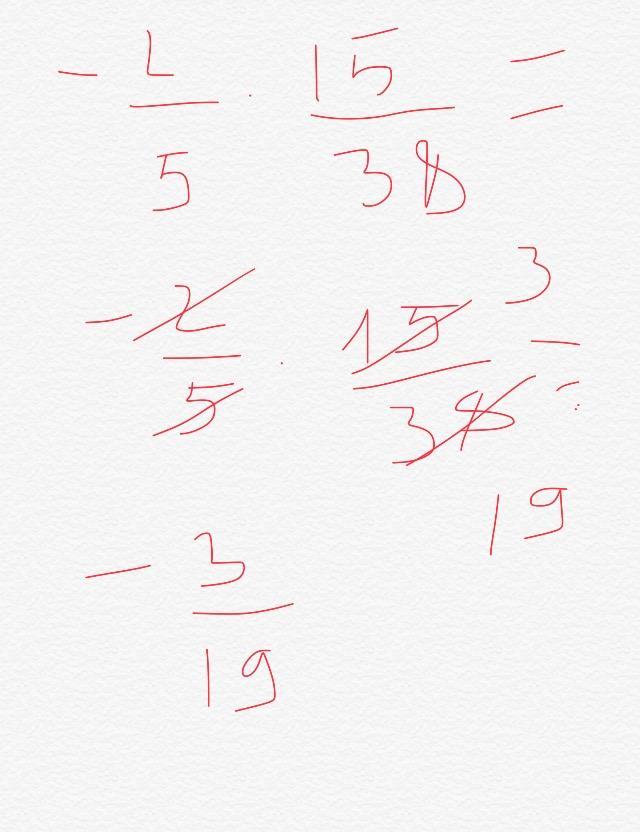 - 2/5 · 15/38 =
- 2/5 · 15/38 =
3
19
- 3/19